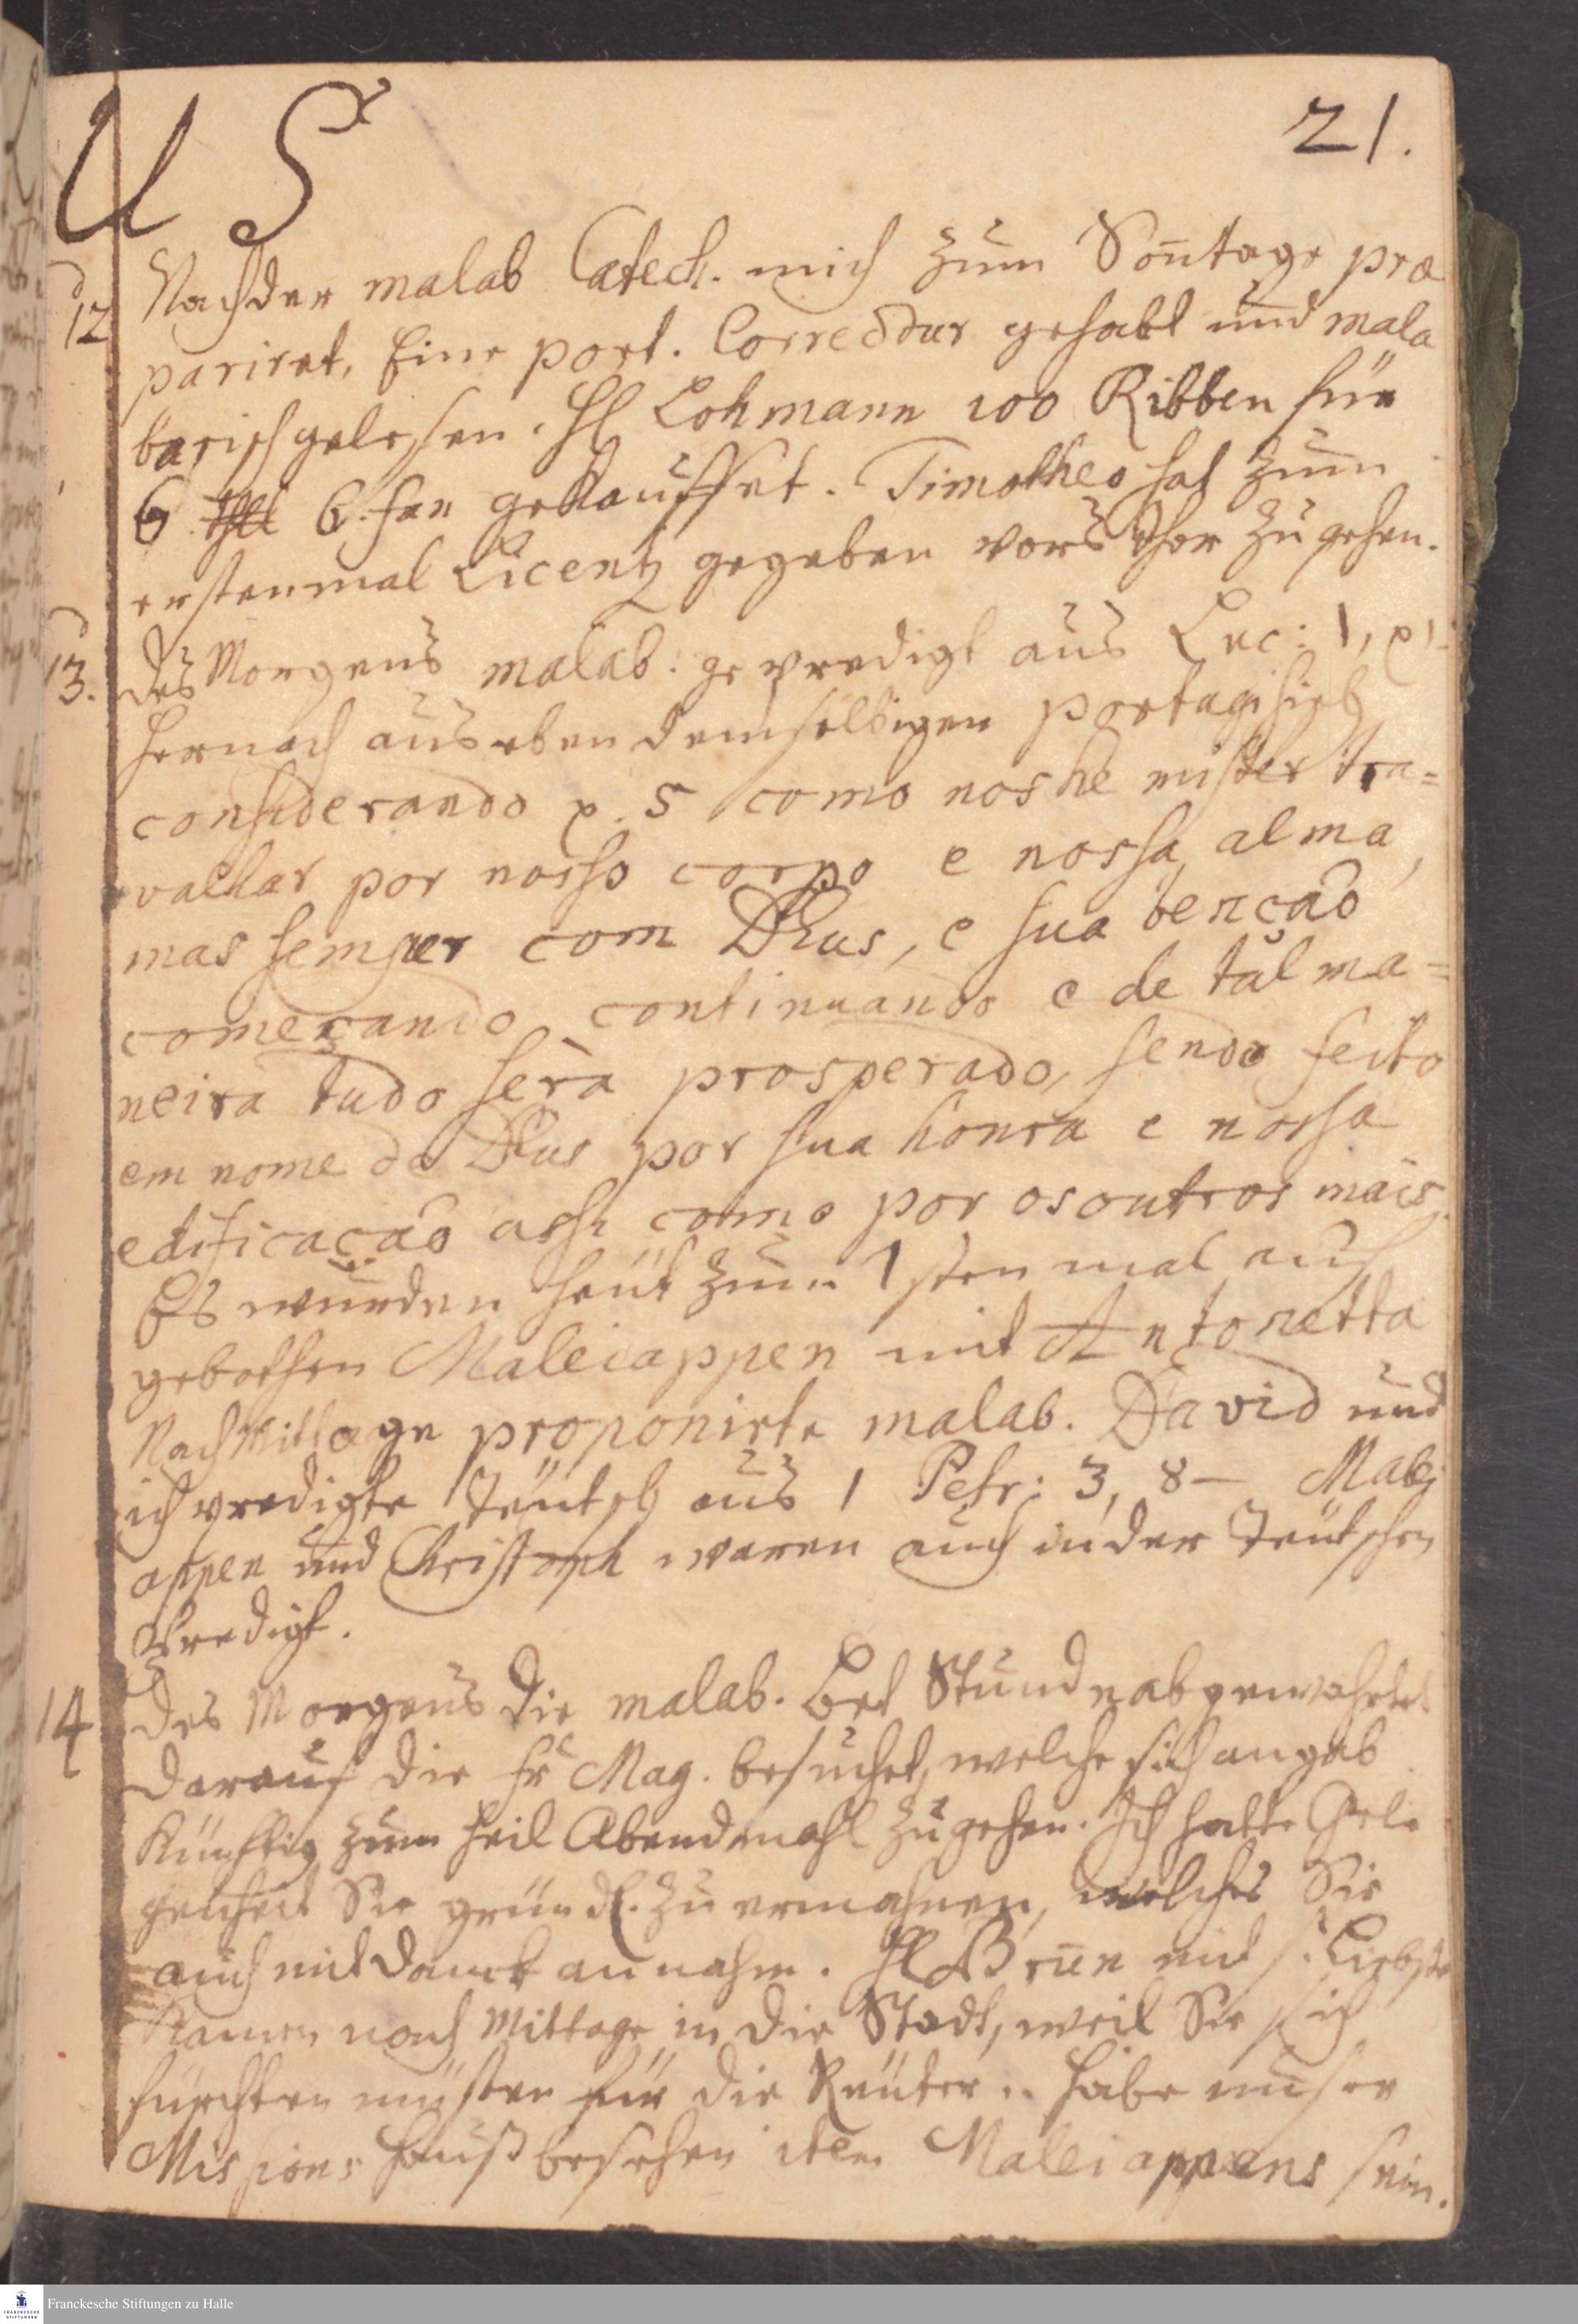 U S
21.
12 Nach der malab Catech. mich zum Sontage præ
pariret, Eine port. Correctur gehabt und mala
barisch gelesen. H Lohmann 100 Ribben für
6 fan gekauffet. Timotheo hat zum
erstenmal Licentz gegeben vors Thor zu gehen.
13. des Morgens malab: geprediget aus Luc: 1,
hernach aus eben demselbigen portugisisch
considerando p. 5 como nos he mister tra=
valhar por nosso corpo e nossa alma,
mas semper com DEus, e sua bençaõ
começando, continuando e de tal ma=
neira tudo serà prosperado, sendo feito
em nome de DEus por sua honra e nossa
edificaçaõ assi como por os outros mais.
Es wurden heut zum 1sten mal auf
gebothen Maleiappen mit Antonetta
NachMittage proponirte malab. David und
ich predigte Teutsch aus 1 Petr: 3, 8— Malej
appen und Christoph waren auch in der Teutschen
Predigt.
14 des Morgens die malab. Bet Stunde abgewartet
darauf die Fr Mag. besuchet, welche sich angab
künfftig zum heil Abendmahl zu gehen. Ich hatte Gele
genheit Sie gründl. zu ermahnen, welches Sie
auch mit Danck annahm. H Brun mit s. Liebste
kamen nach Mittage in die Stadt, weil Sie sich
fürchten müsten für die Reuter. habe unser
Missions Hauß besehen item Maleiappens sein.
Franckesche Stiftungen zu Halle